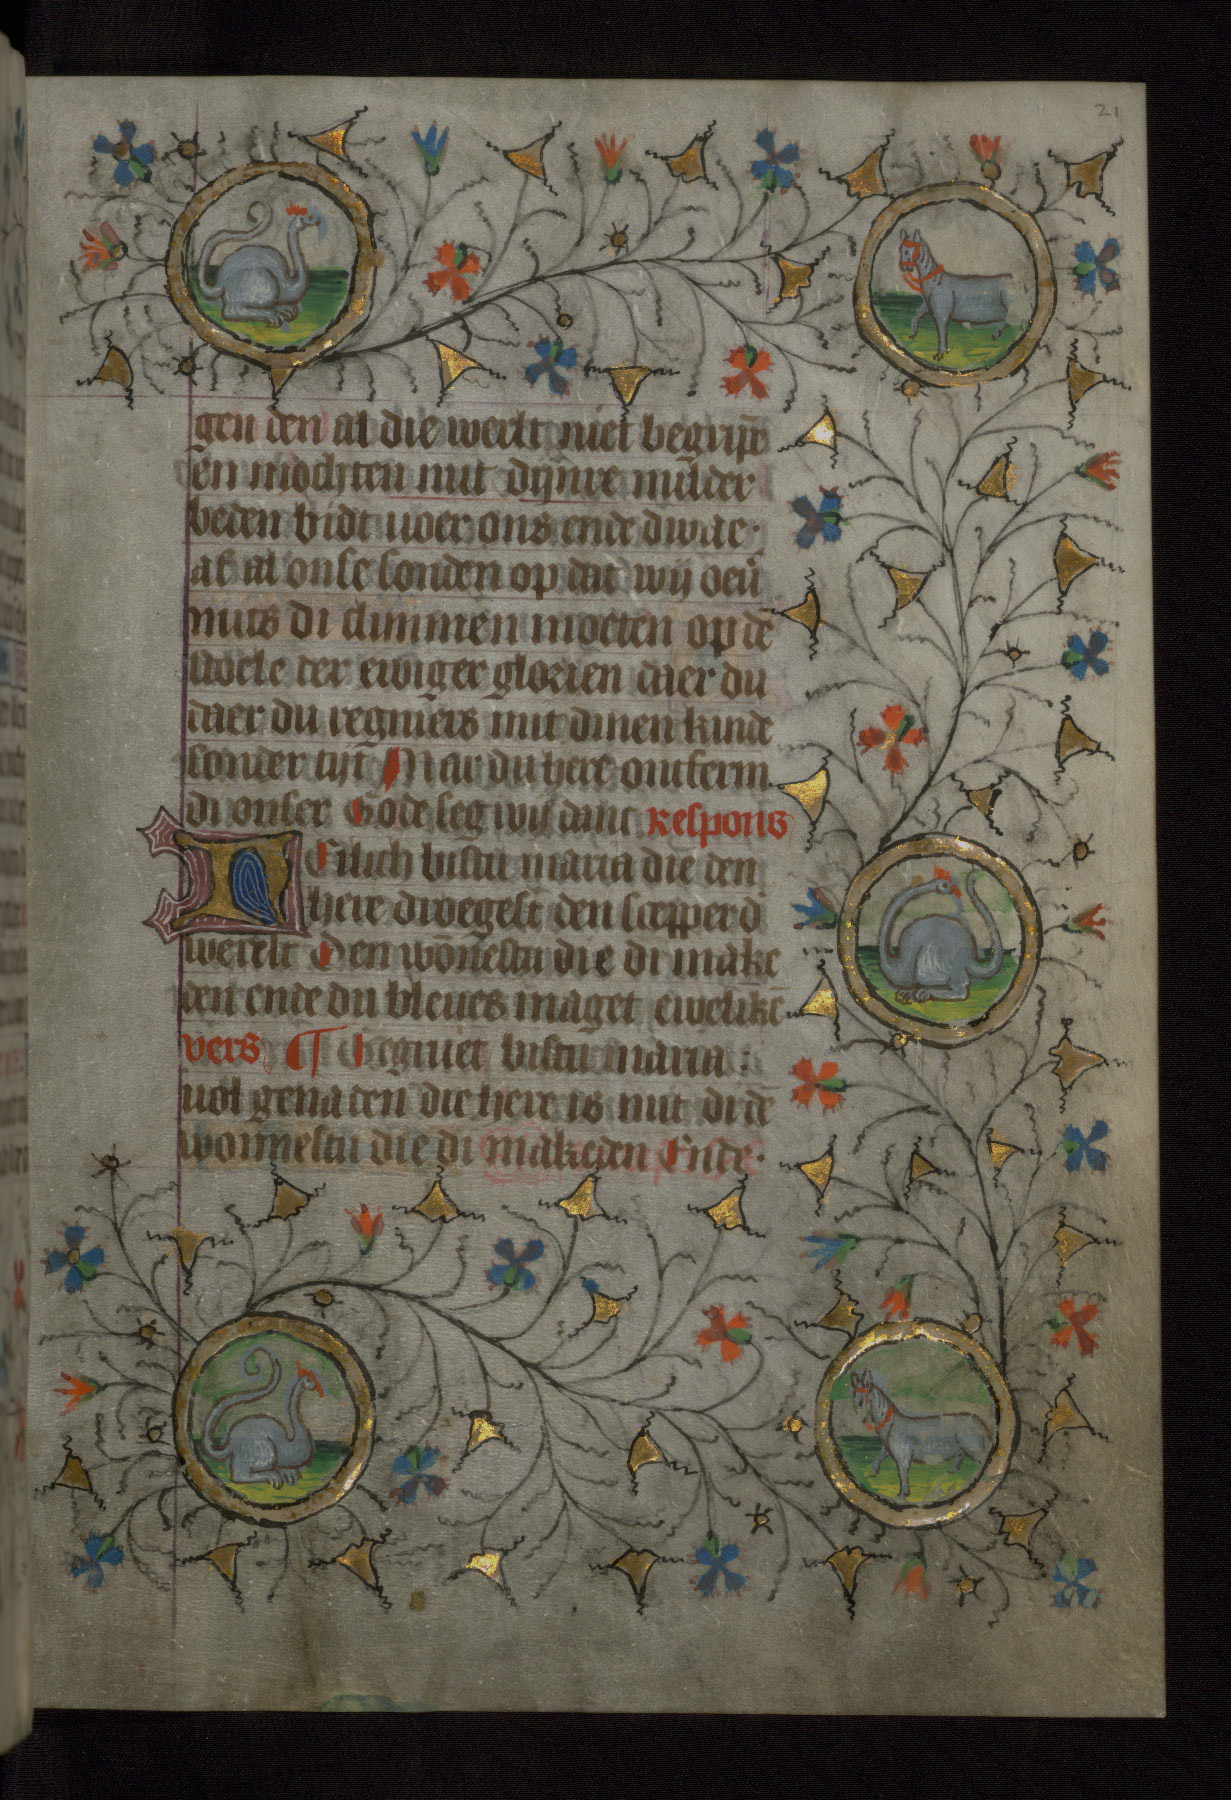 21
gen den al die werlt niet begripē
en mochten mit dijnre milder
beden bidt voer ons ende dwae
af al onse sonden op dat wij ouͥ
mits di climmen moeten op dē
stoele der ewiger glorien daer du
daer du regniers mit dinen kinde
sonder tijt Mar du here ontferm
di onser Gode seg wij danc Respons
Selich bistu maria die den
here droegeste den scepper d
werelt Den wōnestu die di make
den ende du bleues maget ewelikē
vers ¶ Gegruet bistu maria :
vol genaden die here is mit di dē
wonnestu die di makeden Ende